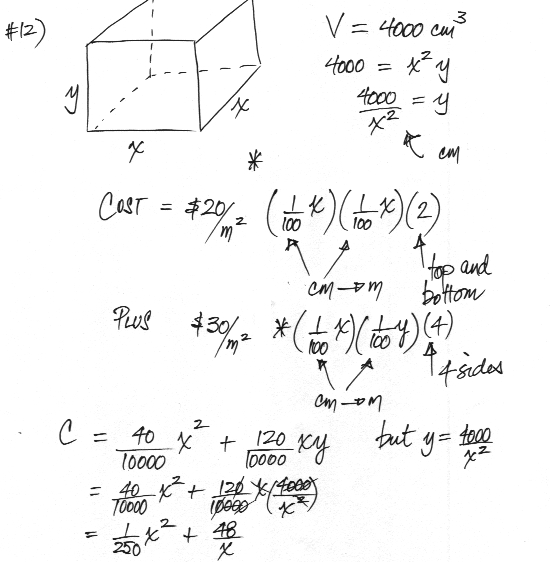 #12)
V = 4000 cm³
4000 = x² y
4000/x² = y
cm
y
x
x
*
COST = $20/m² (1/100 x)(1/100 x)(2)
cm → m
top and
bottom
PLUS $30/m² *(1/100 x)(1/100 y)(4)
cm → m
4 sides
C = 40/10000 x² + 120/10000 xy but y = 4000/x²
= 40/10000 x² + 120/10000 x(4000/x²)
= 1/250 x² + 48/x